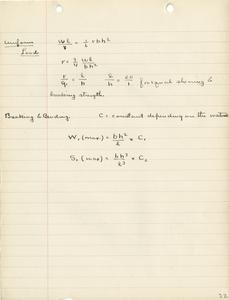 Uniform Load
Wl/8 = 1/6 r b h²
r = 3/4 Wl/bh²
for equal shearing &
bending strength.
Breaking & Bending. C = constant depending on the material
W₁ (max.) = bh²/l × C₁
S₁ (max) = bh³/l³ × C₂
22